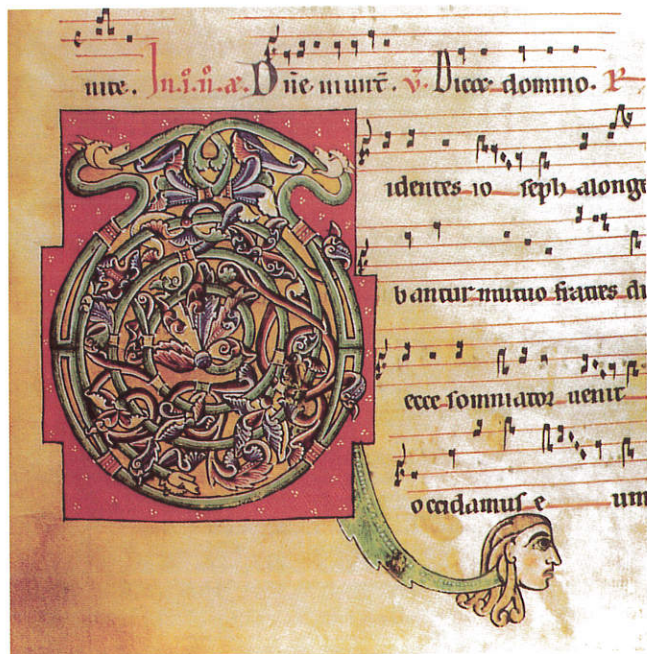 nite. In.i.ii.æ. Dñe munt̄. v̄. Dicet domino. R
identes io seph alonge
bantur mutuo fratres di
ecce somniator uenit
occidamus e um